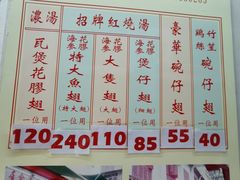 濃湯
招牌紅燒湯
瓦煲花膠翅
一位用
120
海參花膠特大魚翅
(特大翅)
一位用
240
海參花膠大隻翅
(大翅)
一位用
110
海參花膠煲仔翅
(細翅)
一位用
85
豪華碗仔翅
一位用
55
竹笙雞絲碗仔翅
一位用
40